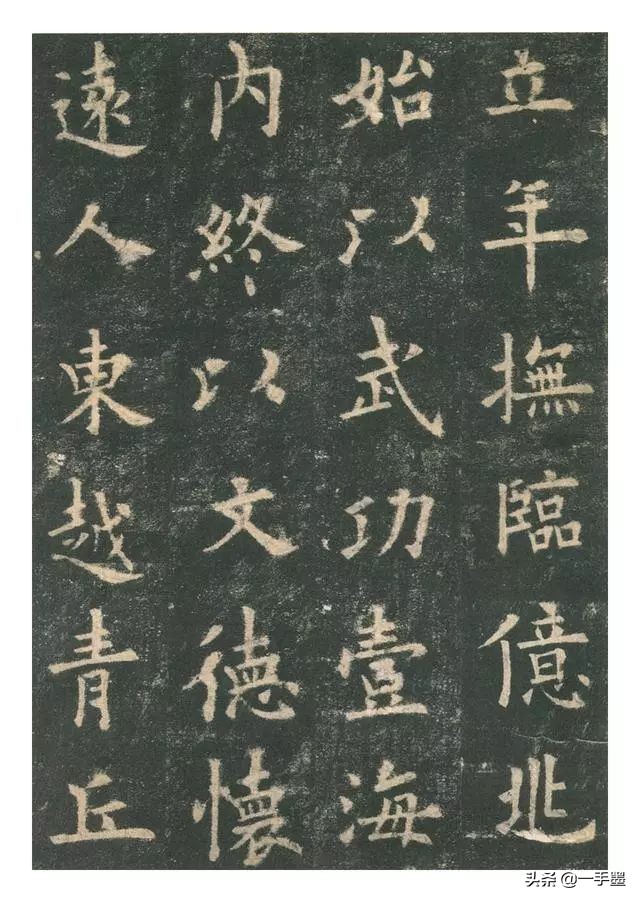 立年撫臨億兆
始以武功壹海
内終以文德懷
遠人東越青丘
头条 @一手墨